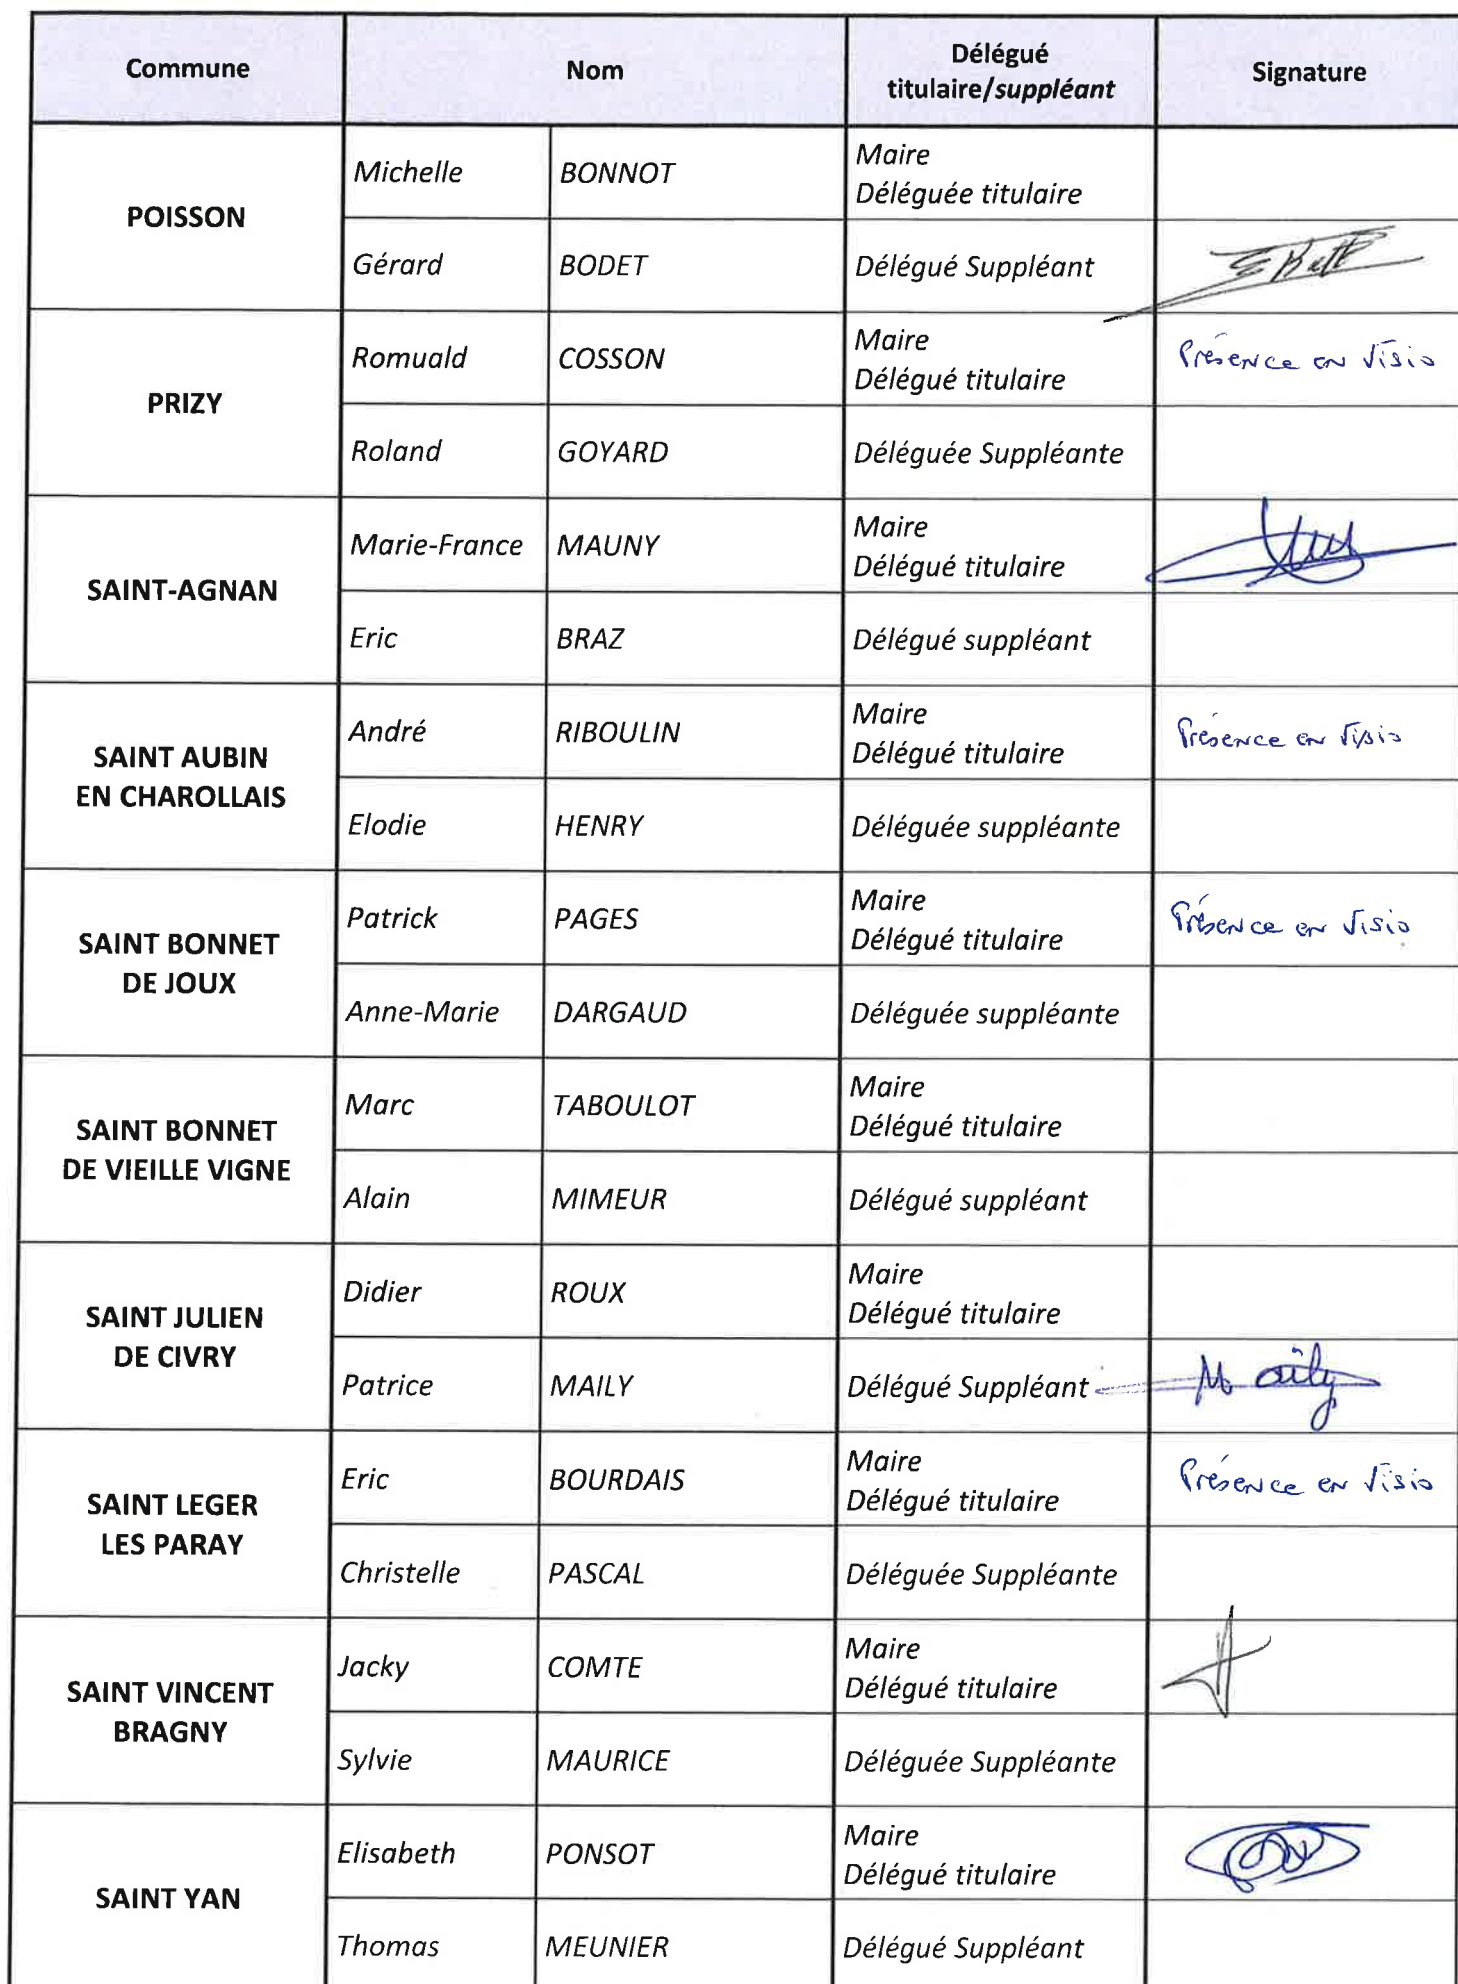 Commune
Nom
Délégué
titulaire/suppléant
Signature
POISSON
Michelle
BONNOT
Maire
Déléguée titulaire
Gérard
BODET
Délégué Suppléant
PRIZY
Romuald
COSSON
Maire
Délégué titulaire
Présence en Visio
Roland
GOYARD
Déléguée Suppléante
SAINT-AGNAN
Marie-France
MAUNY
Maire
Délégué titulaire
Eric
BRAZ
Délégué suppléant
SAINT AUBIN
EN CHAROLLAIS
André
RIBOULIN
Maire
Délégué titulaire
Présence en Visio
Elodie
HENRY
Déléguée suppléante
SAINT BONNET
DE JOUX
Patrick
PAGES
Maire
Délégué titulaire
Présence en Visio
Anne-Marie
DARGAUD
Déléguée suppléante
SAINT BONNET
DE VIEILLE VIGNE
Marc
TABOULOT
Maire
Délégué titulaire
Alain
MIMEUR
Délégué suppléant
SAINT JULIEN
DE CIVRY
Didier
ROUX
Maire
Délégué titulaire
Patrice
MAILY
Délégué Suppléant
Maily
SAINT LEGER
LES PARAY
Eric
BOURDAIS
Maire
Délégué titulaire
Présence en Visio
Christelle
PASCAL
Déléguée Suppléante
SAINT VINCENT
BRAGNY
Jacky
COMTE
Maire
Délégué titulaire
Sylvie
MAURICE
Déléguée Suppléante
SAINT YAN
Elisabeth
PONSOT
Maire
Délégué titulaire
Thomas
MEUNIER
Délégué Suppléant